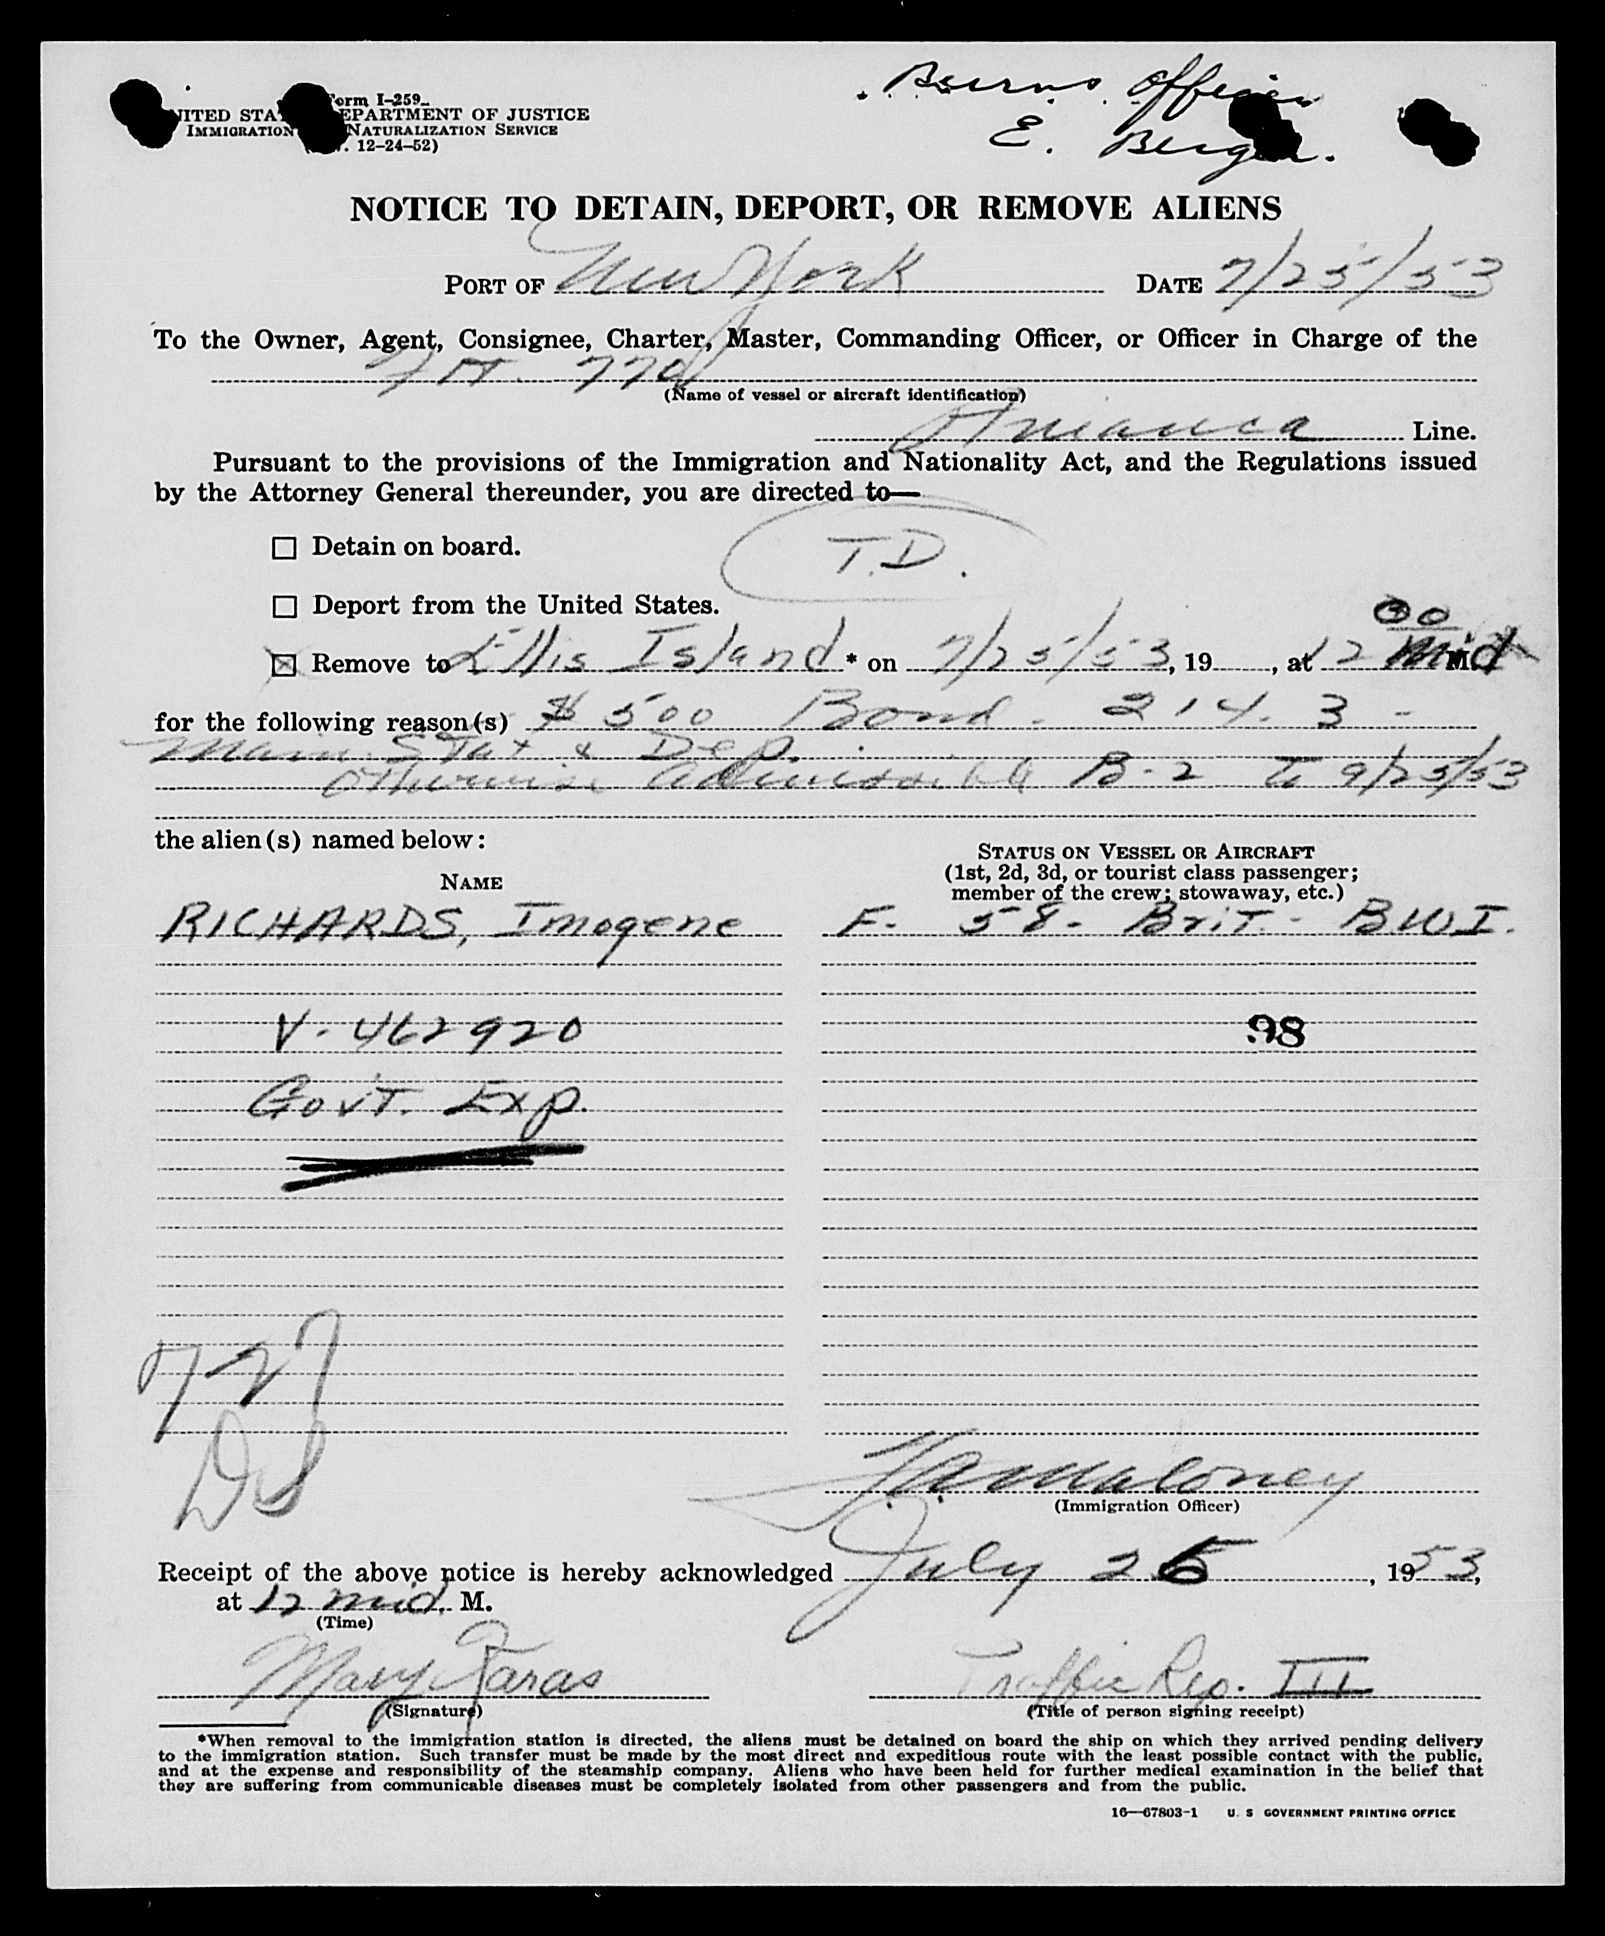 Burns Office
E. Berger.
Form I-259
UNITED STATES DEPARTMENT OF JUSTICE
IMMIGRATION NATURALIZATION SERVICE
12-24-52)
NOTICE TO DETAIN, DEPORT, OR REMOVE ALIENS
PORT OF New York DATE 7/25/53
To the Owner, Agent, Consignee, Charter, Master, Commanding Officer, or Officer in Charge of the
770
(Name of vessel or aircraft identification)
Avianca Line.
Pursuant to the provisions of the Immigration and Nationality Act, and the Regulations issued
by the Attorney General thereunder, you are directed to—
☐ Detain on board.
T.D.
☐ Deport from the United States.
☒ Remove to Ellis Island * on 7/25/53, 19 , at 12 00 Mid M.
for the following reason(s) $500 Bond - 214.3 -
Main. Stat & Dep.
Otherwise admissible B-2 to 9/25/53
the alien(s) named below:
NAME
STATUS ON VESSEL OR AIRCRAFT
(1st, 2d, 3d, or tourist class passenger;
member of the crew; stowaway, etc.)
RICHARDS, Imogene F. 58 - Brit. - BWI.
V. 462920
98
Gov't. Exp.
727
DS
Maloney
(Immigration Officer)
Receipt of the above notice is hereby acknowledged July 25, 1953,
at 12 mid. M.
(Time)
Mary Karas Traffic Rep. III
(Signature) (Title of person signing receipt)
*When removal to the immigration station is directed, the aliens must be detained on board the ship on which they arrived pending delivery
to the immigration station. Such transfer must be made by the most direct and expeditious route with the least possible contact with the public,
and at the expense and responsibility of the steamship company. Aliens who have been held for further medical examination in the belief that
they are suffering from communicable diseases must be completely isolated from other passengers and from the public.
16—67803-1 U. S GOVERNMENT PRINTING OFFICE